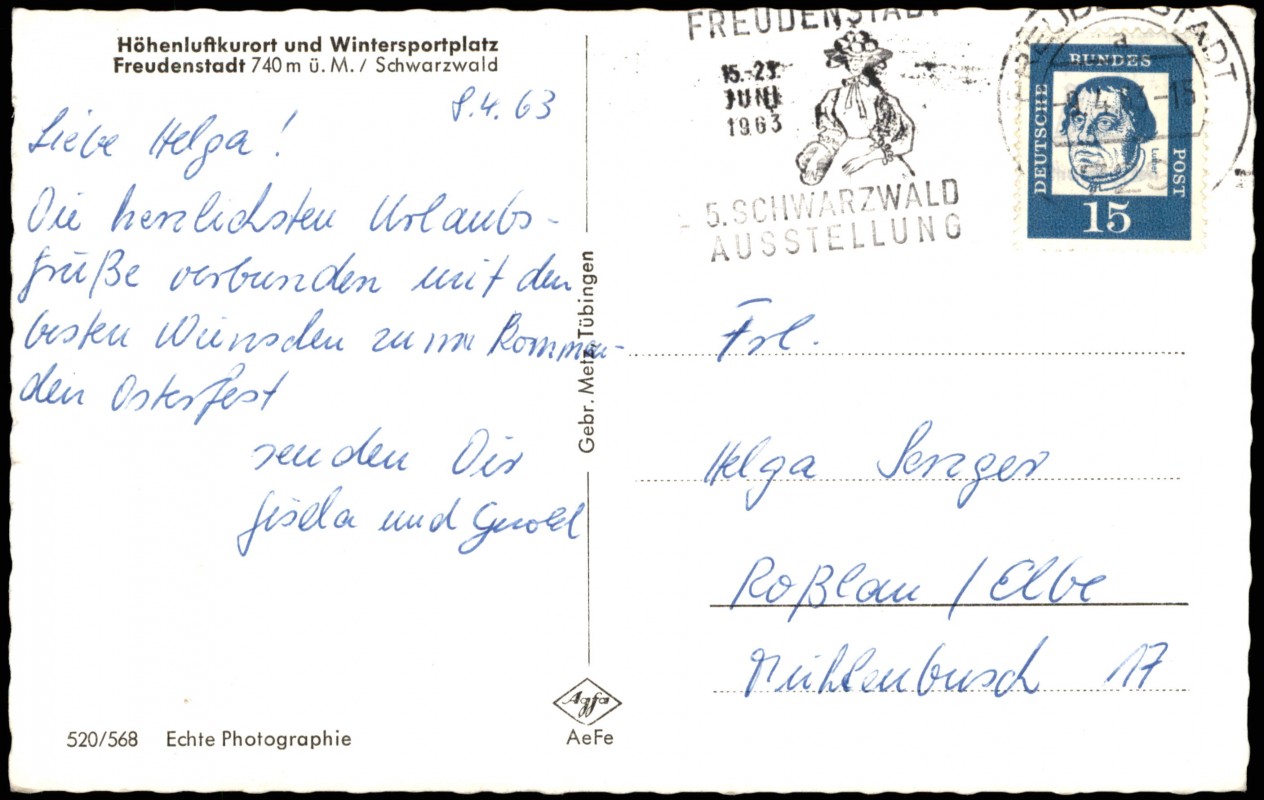 Höhenluftkurort und Wintersportplatz
Freudenstadt 740 m ü. M. / Schwarzwald
8.4.63
Liebe Helga!
Die herzlichsten Urlaubs-
grüße verbunden mit den
besten Wünschen zum kommen-
den Osterfest
senden Dir
Gisela und Gerold
520/568 Echte Photographie
Gebr. Metz, Tübingen
Agfa
AeFe
FREUDENSTADT
15.-23.
JUNI
1963
5. SCHWARZWALD
AUSSTELLUNG
FREUDENSTADT
a
DEUTSCHE
BUNDES
POST
Luther
15
Frl.
Helga Senger
Roßlau / Elbe
Mühlenbusch 17